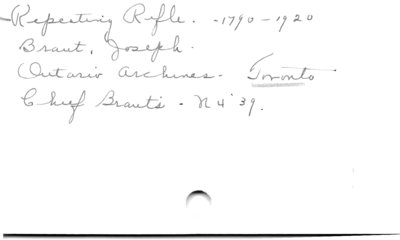 Repeating Rifle. - 1790 - 1920
Brant, Joseph.
Ontario Archives. Toronto
Chief Brant's - N 4' 39.